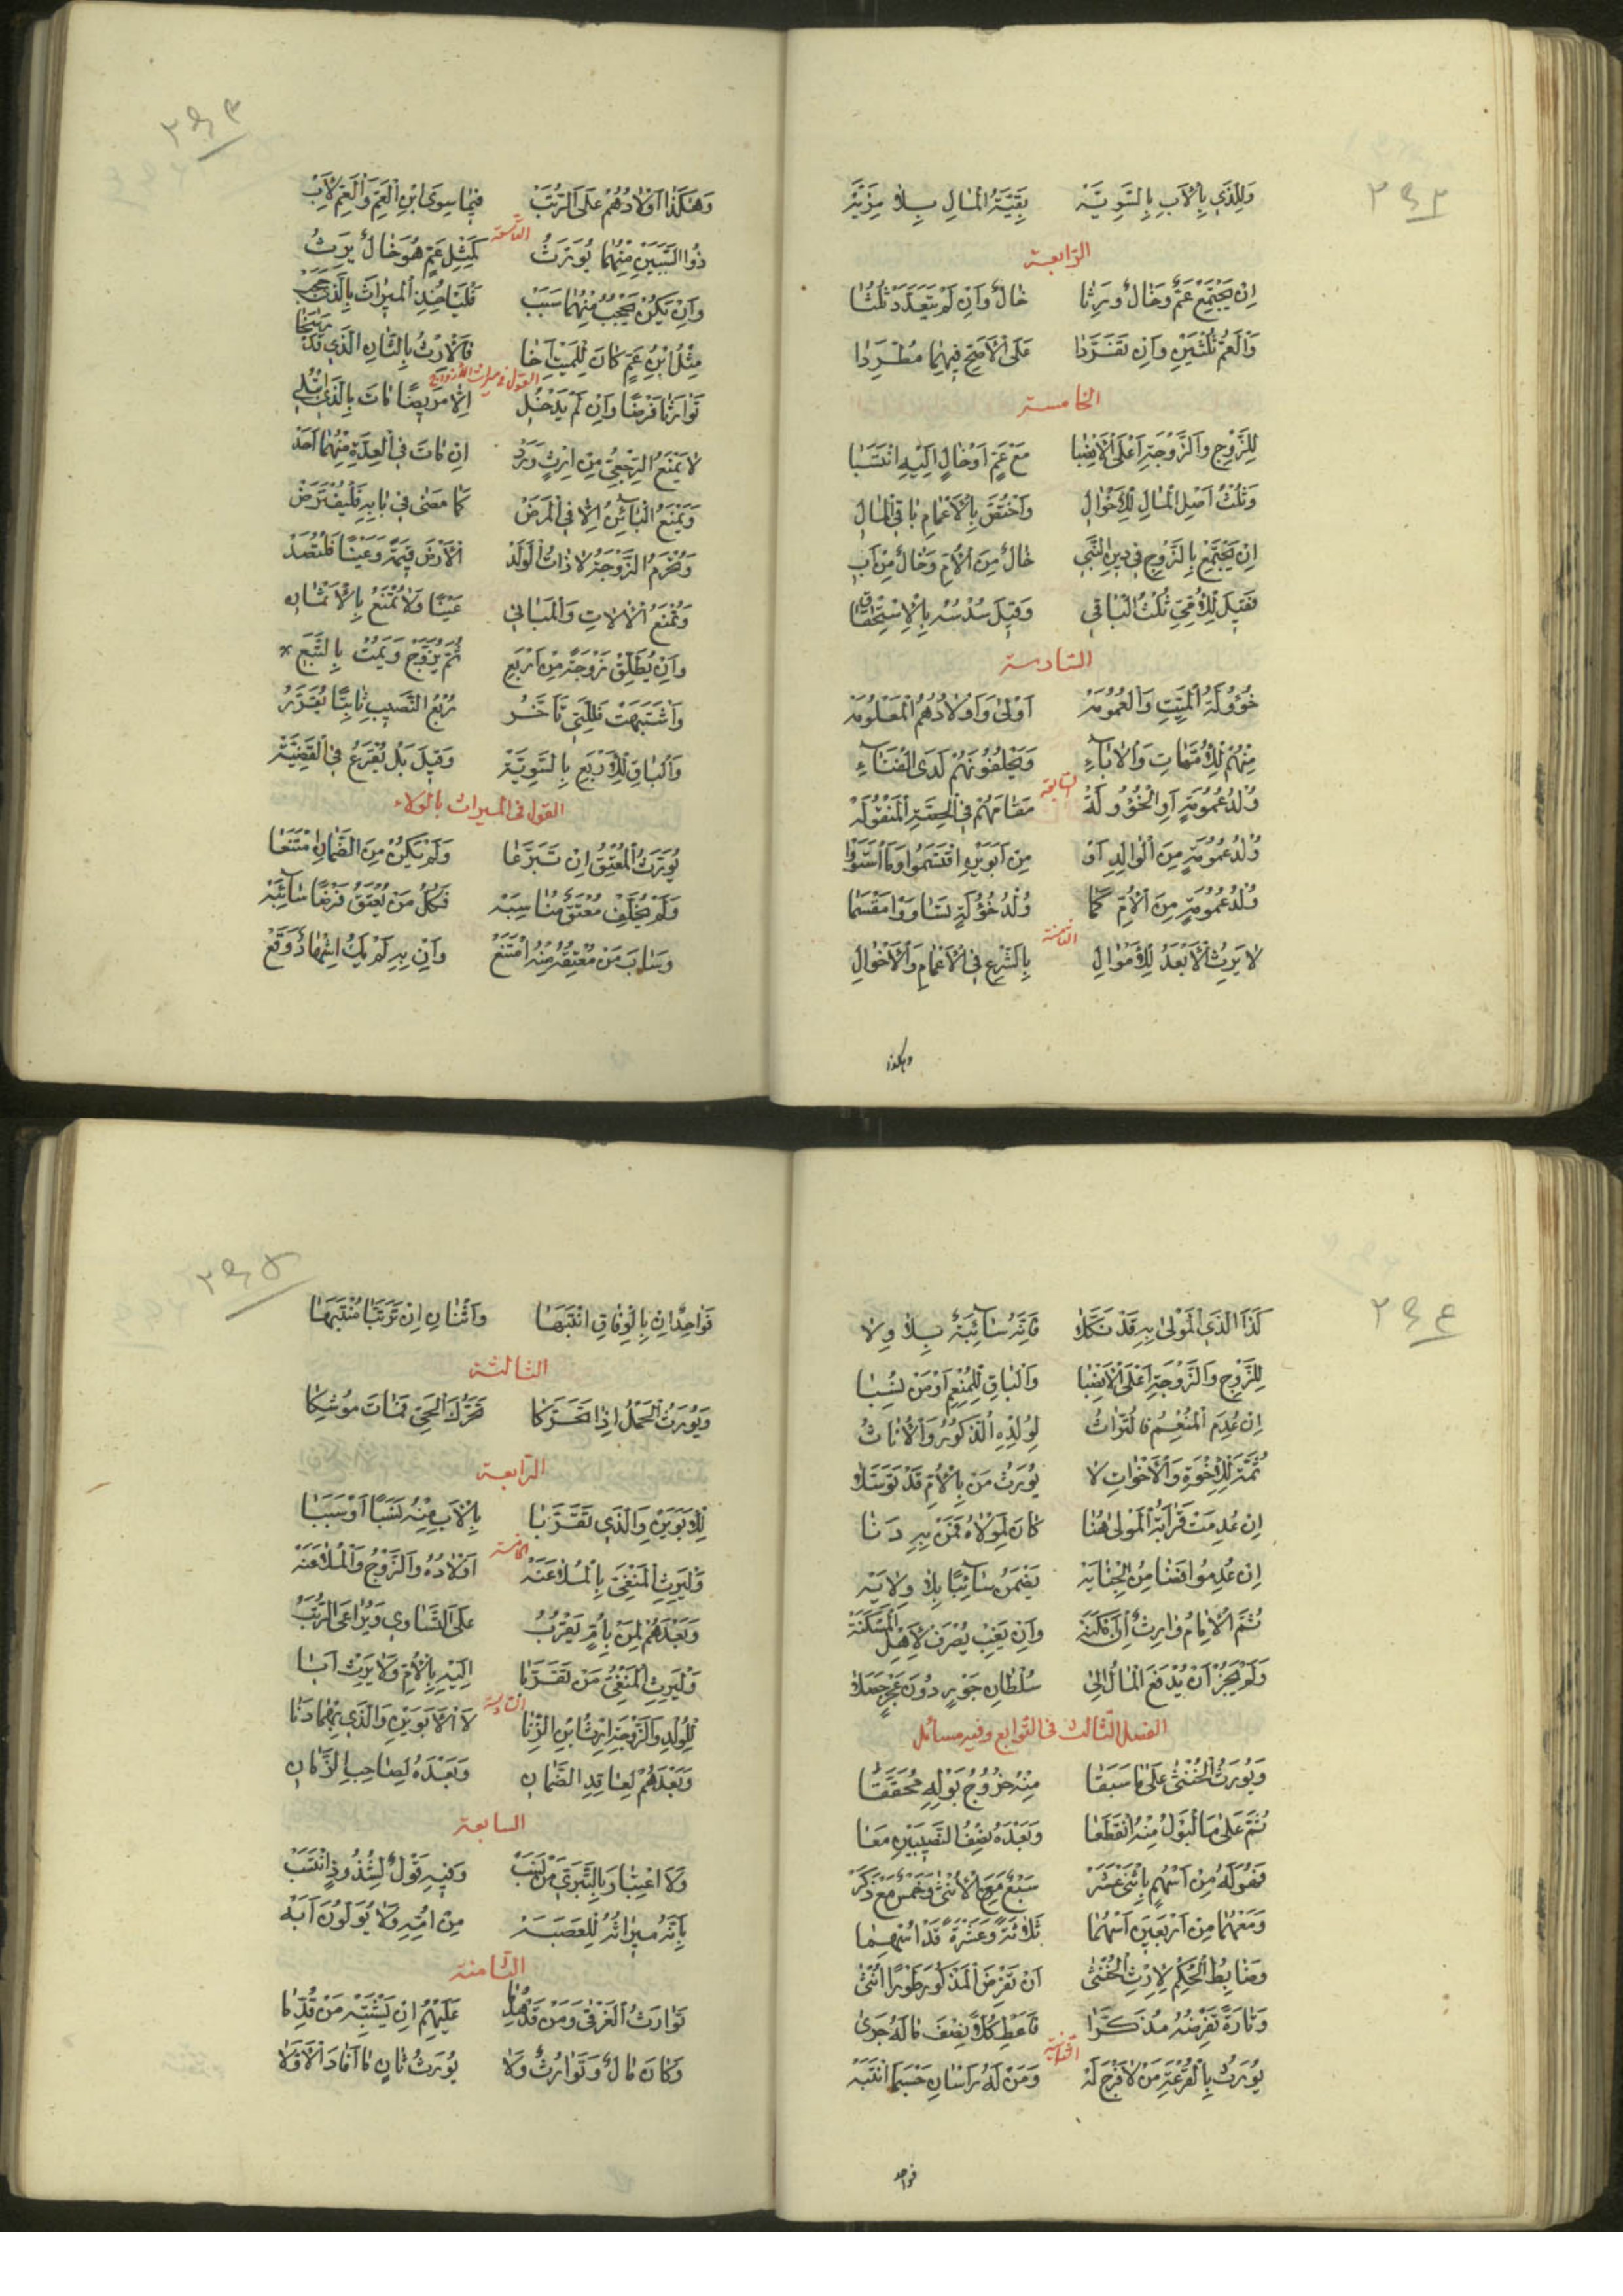 ٣٩٢
وَلِلَّذِي بِالْأَبِ بِالسَّوِيَّةْ بَقِيَّةُ الْمَالِ بِلَا مَزِيَّةْ
الرابعة
إِنْ يَجْتَمِعْ عَمٌّ وَخَالٌ وَرِثَا خَالٌ وَإِنْ لَمْ يَتَعَدَّدْ ثُلُثَا
وَالْعَمُّ ثُلْثَيْنِ وَإِنْ تَفَرَّدَا عَلَى الْأَصَحِّ فِيهِمَا مُطَّرِدَا
الخامسة
لِلزَّوْجِ وَالزَّوْجَةِ أَعْلَى الْأَنْصِبَا مَعْ عَمٍّ أَوْ خَالٍ إِلَيْهِ انْتَسَبَا
وَثُلْثُ أَصْلِ الْمَالِ لِلْأَخْوَالِ وَاخْتَصَّ بِالْأَعْمَامِ بَاقِي الْمَالِ
إِنْ يَجْتَمِعْ بِالزَّوْجِ فِي دِينِ النَّبِي خَالٌ مِنَ الْأُمِّ وَخَالٌ مِنْ أَبِ
فَقِيلَ لِلْأُمِّيِّ ثُلْثُ الْبَاقِي وَقِيلَ سُدْسُهُ بِالِاسْتِحْقَاقِ
السادسة
خُؤُولَةُ الْمَيِّتِ وَالْعُمُومَةْ أَوْلَى وَأَوْلَادُهُمُ الْمَعْلُومَةْ
مِنْهُمْ لِلْأُمَّهَاتِ وَالْآبَاءِ وَيَخْلُفُونَهُمْ لَدَى الْفَنَاءِ
السابعة
وُلْدُ عُمُومَةٍ أَوِ الْخُؤُولَةْ مَقَامَهُمْ فِي الْحِصَّةِ الْمَنْقُولَةْ
وُلْدُ عُمُومَةٍ مِنَ الْوَالِدِ أَوْ مِنْ أَبَوَيْهِ اقْتَسَمُوا وَمَا اسْتَوَوْا
وُلْدُ عُمُومَةٍ مِنَ الْأُمِّ كَمَا وُلْدُ خُؤُلَةٍ تَسَاوَوْا مَقْسَمَا
الثامنة
لَا يَرِثُ الْأَبْعَدُ لِلْأَمْوَالِ بِالشَّرْعِ فِي الْأَعْمَامِ وَالْأَخْوَالِ
وهكذا
٣٩٣
وَهٰكَذَا أَوْلَادُهُمْ عَلَى الرُّتَبْ فِيمَا سِوَى ابْنِ الْعَمِّ وَالْعَمِّ لِأَبْ
التاسعة
ذُو السَّبَبَيْنِ مِنْهُمَا يُوَرَّثُ كَمِثْلِ عَمٍّ هُوَ خَالٌ يَرِثُ
وَإِنْ يَكُنْ يَحْجُبُ مِنْهُمَا سَبَبْ فَلْيَأْخُذِ الْمِيرَاثَ بِالَّذِي حَجَبْ
مِثْلُ ابْنِ عَمٍّ كَانَ لِلْمَيْتِ أَخَا فَالْإِرْثُ بِالثَّانِ الَّذِي قَدْ رَسَخَا
القول في ميراث الأزواج
تَوَارَثَا فَرْضًا وَإِنْ لَمْ يَدْخُلِ إِلَّا مَرِيضًا مَاتَ بِالَّذِي ابْتُلِي
لَا يَمْنَعُ الرِّجْعِيُّ مِنْ إِرْثٍ وَرَدْ إِنْ مَاتَ فِي الْعِدَّةِ مِنْهُمَا أَحَدْ
وَيَمْنَعُ الْبَائِنُ إِلَّا فِي الْمَرَضْ كَمَا مَضَى فِي بَابِهِ فَلْيُفْتَرَضْ
وَتُحْرَمُ الزَّوْجَةُ لَا ذَاتُ الْوَلَدْ الْأَرْضَ قِيمَةً وَعَيْنًا فَلْتُصَدْ
وَتُمْنَعُ الْآلَاتِ وَالْمَبَانِي عَيْنًا وَلَا تُمْنَعُ بِالْأَثْمَانِ
وَإِنْ يُطَلِّقْ زَوْجَةً مِنْ أَرْبَعِ ثُمَّ يُزَوَّجْ وَيَمُتْ بِالتَّبَعِ
وَاشْتَبَهَتْ فَلِلَّتِي تَأَخَّرُ رُبْعُ النَّصِيبِ ثَابِتًا يُقَرَّرُ
وَالْبَاقِ لِلْأَرْبَعِ بِالسَّوِيَّةْ وَقِيلَ بَلْ يُقْرَعُ فِي الْقَضِيَّةْ
القول في الميراث بالولاء
يُوَرَّثُ الْمُعْتِقُ إِنْ تَبَرَّعَا وَلَمْ يَكُنْ مِنَ الضَّمَانِ مَنَعَا
وَلَمْ يُخَلِّفْ مُعْتَقٌ مُنَاسِبَهْ فَكُلُّ مَنْ يُعْتَقُ فَرْضًا سَائِبَهْ
وَسَابَ مَنْ مُعْتِقُهُ مِنْهُ امْتَنَعْ وَإِنْ بِهِ لَمْ يَكُ إِشْهَادٌ وَقَعْ
٣٩٤
كَذَا الَّذِي الْمَوْلَى بِهِ قَدْ نَكَّلَا فَإِنَّهُ سَائِبَةٌ بِلَا وِلَا
لِلزَّوْجِ وَالزَّوْجَةِ أَعْلَى الْأَنْصِبَا وَالْبَاقِ لِلْمُنْعِمِ أَوْ مَنْ نُسِبَا
إِنْ عُدِمَ الْمُنْعِمُ فَالتُّرَاثُ لِوُلْدِهِ الذُّكُورُ وَالْإِنَاثُ
ثُمَّتَ لِلْإِخْوَةِ وَالْأَخْوَاتِ لَا يُورَثُ مَنْ بِالْأُمِّ قَدْ تَوَسَّلَا
إِنْ عُدِمَتْ قَرَابَةُ الْمَوْلَى هُنَا كَانَ لِمَوْلَاهُ فَمَنْ بِهِ دَنَا
إِنْ عُدِمُوا فَضَامِنُ الْجِنَايَةْ يَضْمَنُ سَائِبًا بِلَا وِلَايَةْ
ثُمَّ الْإِمَامُ وَارِثٌ إِنْ أَمْكَنَهْ وَإِنْ يَغِبْ يُصْرَفْ لِأَهْلِ الْمَسْكَنَةْ
وَلَمْ يَجُزْ أَنْ يُدْفَعَ الْمَالُ إِلَى سُلْطَانِ جَوْرٍ دُونَ عَجْزٍ جَعَلَا
الفصل الثالث في التوابع وفيه مسائل
وَيُورَثُ الْخُنْثَى عَلَى مَا سَبَقَا مِنْهُ خُرُوجُ بَوْلِهِ مُحَقَّقَا
ثُمَّ عَلَى مَا الْبَوْلُ مِنْهُ انْقَطَعَا وَبَعْدَهُ نِصْفُ النَّصِيبَيْنِ مَعَا
فَهُوَ لَهُ مِنْ أَسْهُمٍ بِاثْنَيْ عَشَرْ سَبْعٌ مَعَ الْأُنْثَى وَخَمْسٌ مَعْ ذَكَرْ
وَمَعْهُمَا مِنْ أَرْبَعِينَ أَسْهُمَا ثَلَاثَةً وَعَشْرَةً قَدْ أُسْهِمَا
وَضَابِطُ الْحُكْمِ لِإِرْثِ الْخُنْثَى أَنْ تَفْرِضَ الْمَذْكُورَ طَوْرًا أُنْثَى
وَتَارَةً تَفْرِضُهُ مُذَكَّرَا فَأَعْطِ كُلًّا نِصْفَ مَا لَهُ جَرَى
الثانية
يُورَثُ بِالْقُرْعَةِ مَنْ لَا فَرْجَ لَهْ وَمَنْ لَهُ رَأْسَانِ حَسْبَمَا انْتَبَهْ
فواحد
٣٩٥
فَوَاحِدٌ إِنْ بِالْوِفَاقِ انْتَبَهَا وَاثْنَانِ إِنْ تَرَتَّبَا مُنْتَبِهَا
الثالثة
وَيُورَثُ الْحَمْلُ إِذَا تَحَرَّكَا تَحَرُّكَ الْحَيِّ فَمَاتَ مُوشِكَا
الرابعة
لِلْأَبَوَيْنِ وَالَّذِي تَقَرَّبَا بِالْأَبِ مِنْهُ نَسَبًا أَوْ سَبَبَا
الخامسة
وَلْيَرِثِ الْمَنْفِيَّ بِالْمُلَاعَنَةْ أَوْلَادُهُ وَالزَّوْجُ وَالْمُلَاعَنَةْ
وَبَعْدَهُمْ لِمَنْ بِأُمٍّ يَقْرُبُ عَلَى التَّسَاوِي وَيُرَاعَى الرُّتَبُ
وَلْيَرِثِ الْمَنْفِيُّ مَنْ تَقَرَّبَا إِلَيْهِ بِالْأُمِّ وَلَا يَرِثْ أَبَا
السادسة
لِلْوُلْدِ وَالزَّوْجَةِ إِرْثُ ابْنِ الزِّنَا لَا الْأَبَوَيْنِ وَالَّذِي بِهِمَا دَنَا
وَبَعْدَهُمْ لِعَاقِدِ الضَّمَانِ وَبَعْدَهُ لِصَاحِبِ الزَّمَانِ
السابعة
وَلَا اعْتِبَارَ بِالتَّبَرِّي مِنْ نَسَبْ وَفِيهِ قَوْلٌ لِشُذُوذٍ انْتَسَبْ
بِأَنَّهُ مِيرَاثُهُ لِلْعَصَبَةْ مِنْ أُمِّهِ وَلَا يُوَلُّونَ أَبَهْ
الثامنة
تَوَارَثُ الْغَرْقَى وَمَنْ قَدْ هُدِمَا عَلَيْهِمُ إِنْ يَشْتَبِهْ مَنْ قُدِّمَا
وَكَانَ مَالٌ وَتَوَارُثٌ وَلَا يُورَثُ ثَانٍ مَا أَفَادَ الْأَوَّلَا